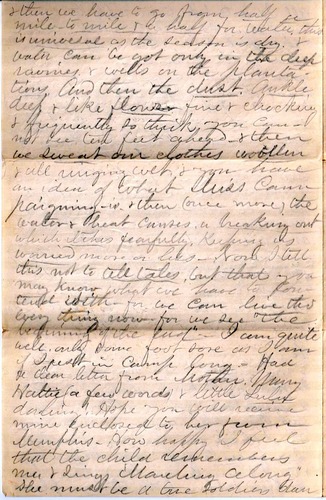 & then we have to go from half a
mile to mile & a half for water, this
is universal as the season is dry &
water can be got only in the deep
ravines & wells on the planta
tions. And then the dust. Ankle
deep & like flour fine & choking
& frequently so thick you can
not see ten feet ahead & then
we sweat our clothes woollen
& all ringing wet, & you have
an idea of what this Cam
paigning is & then (once more) the
water & heat causes a breaking out
which itches fearfully, keeping us
worried more or less — Now I tell
this not to tell tales but that you
may know what we have to con
tend with — for we can live thro
every thing now for we see "the
beginning of the end". I am quite
well only some foot sore as I am
if I rest in Camp long — Had
a dear letter from Mother, Nanny
Hattie (a few words) & little
darling. Hope you will receive
mine enclosed to her from
Memphis. How happy I feel
that the child remembers
me & sings "Marching Along"
She must be a true Soldiers